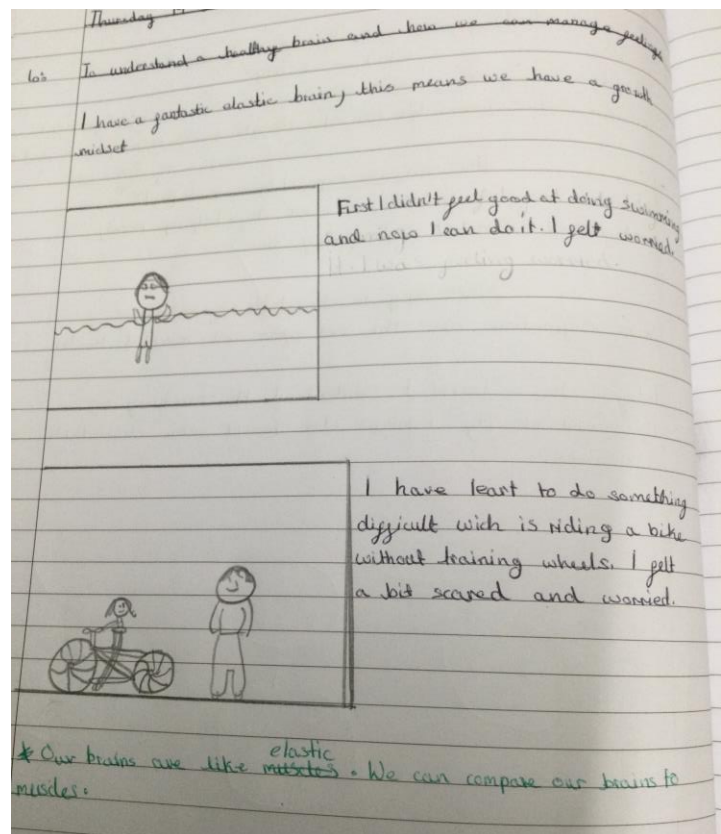 Thursday
Lo: To understand a healthy brain and how we can manage feelings
I have a fantastic elastic brain, this means we have a growth
midset
First I didn't feel good at doing swimming
and now I can do it. I felt worried.
I have leart to do something
difficult wich is riding a bike
without training wheels. I felt
a bit scared and worried.
elastic
* Our brains are like muscles. We can compare our brains to
muscles.